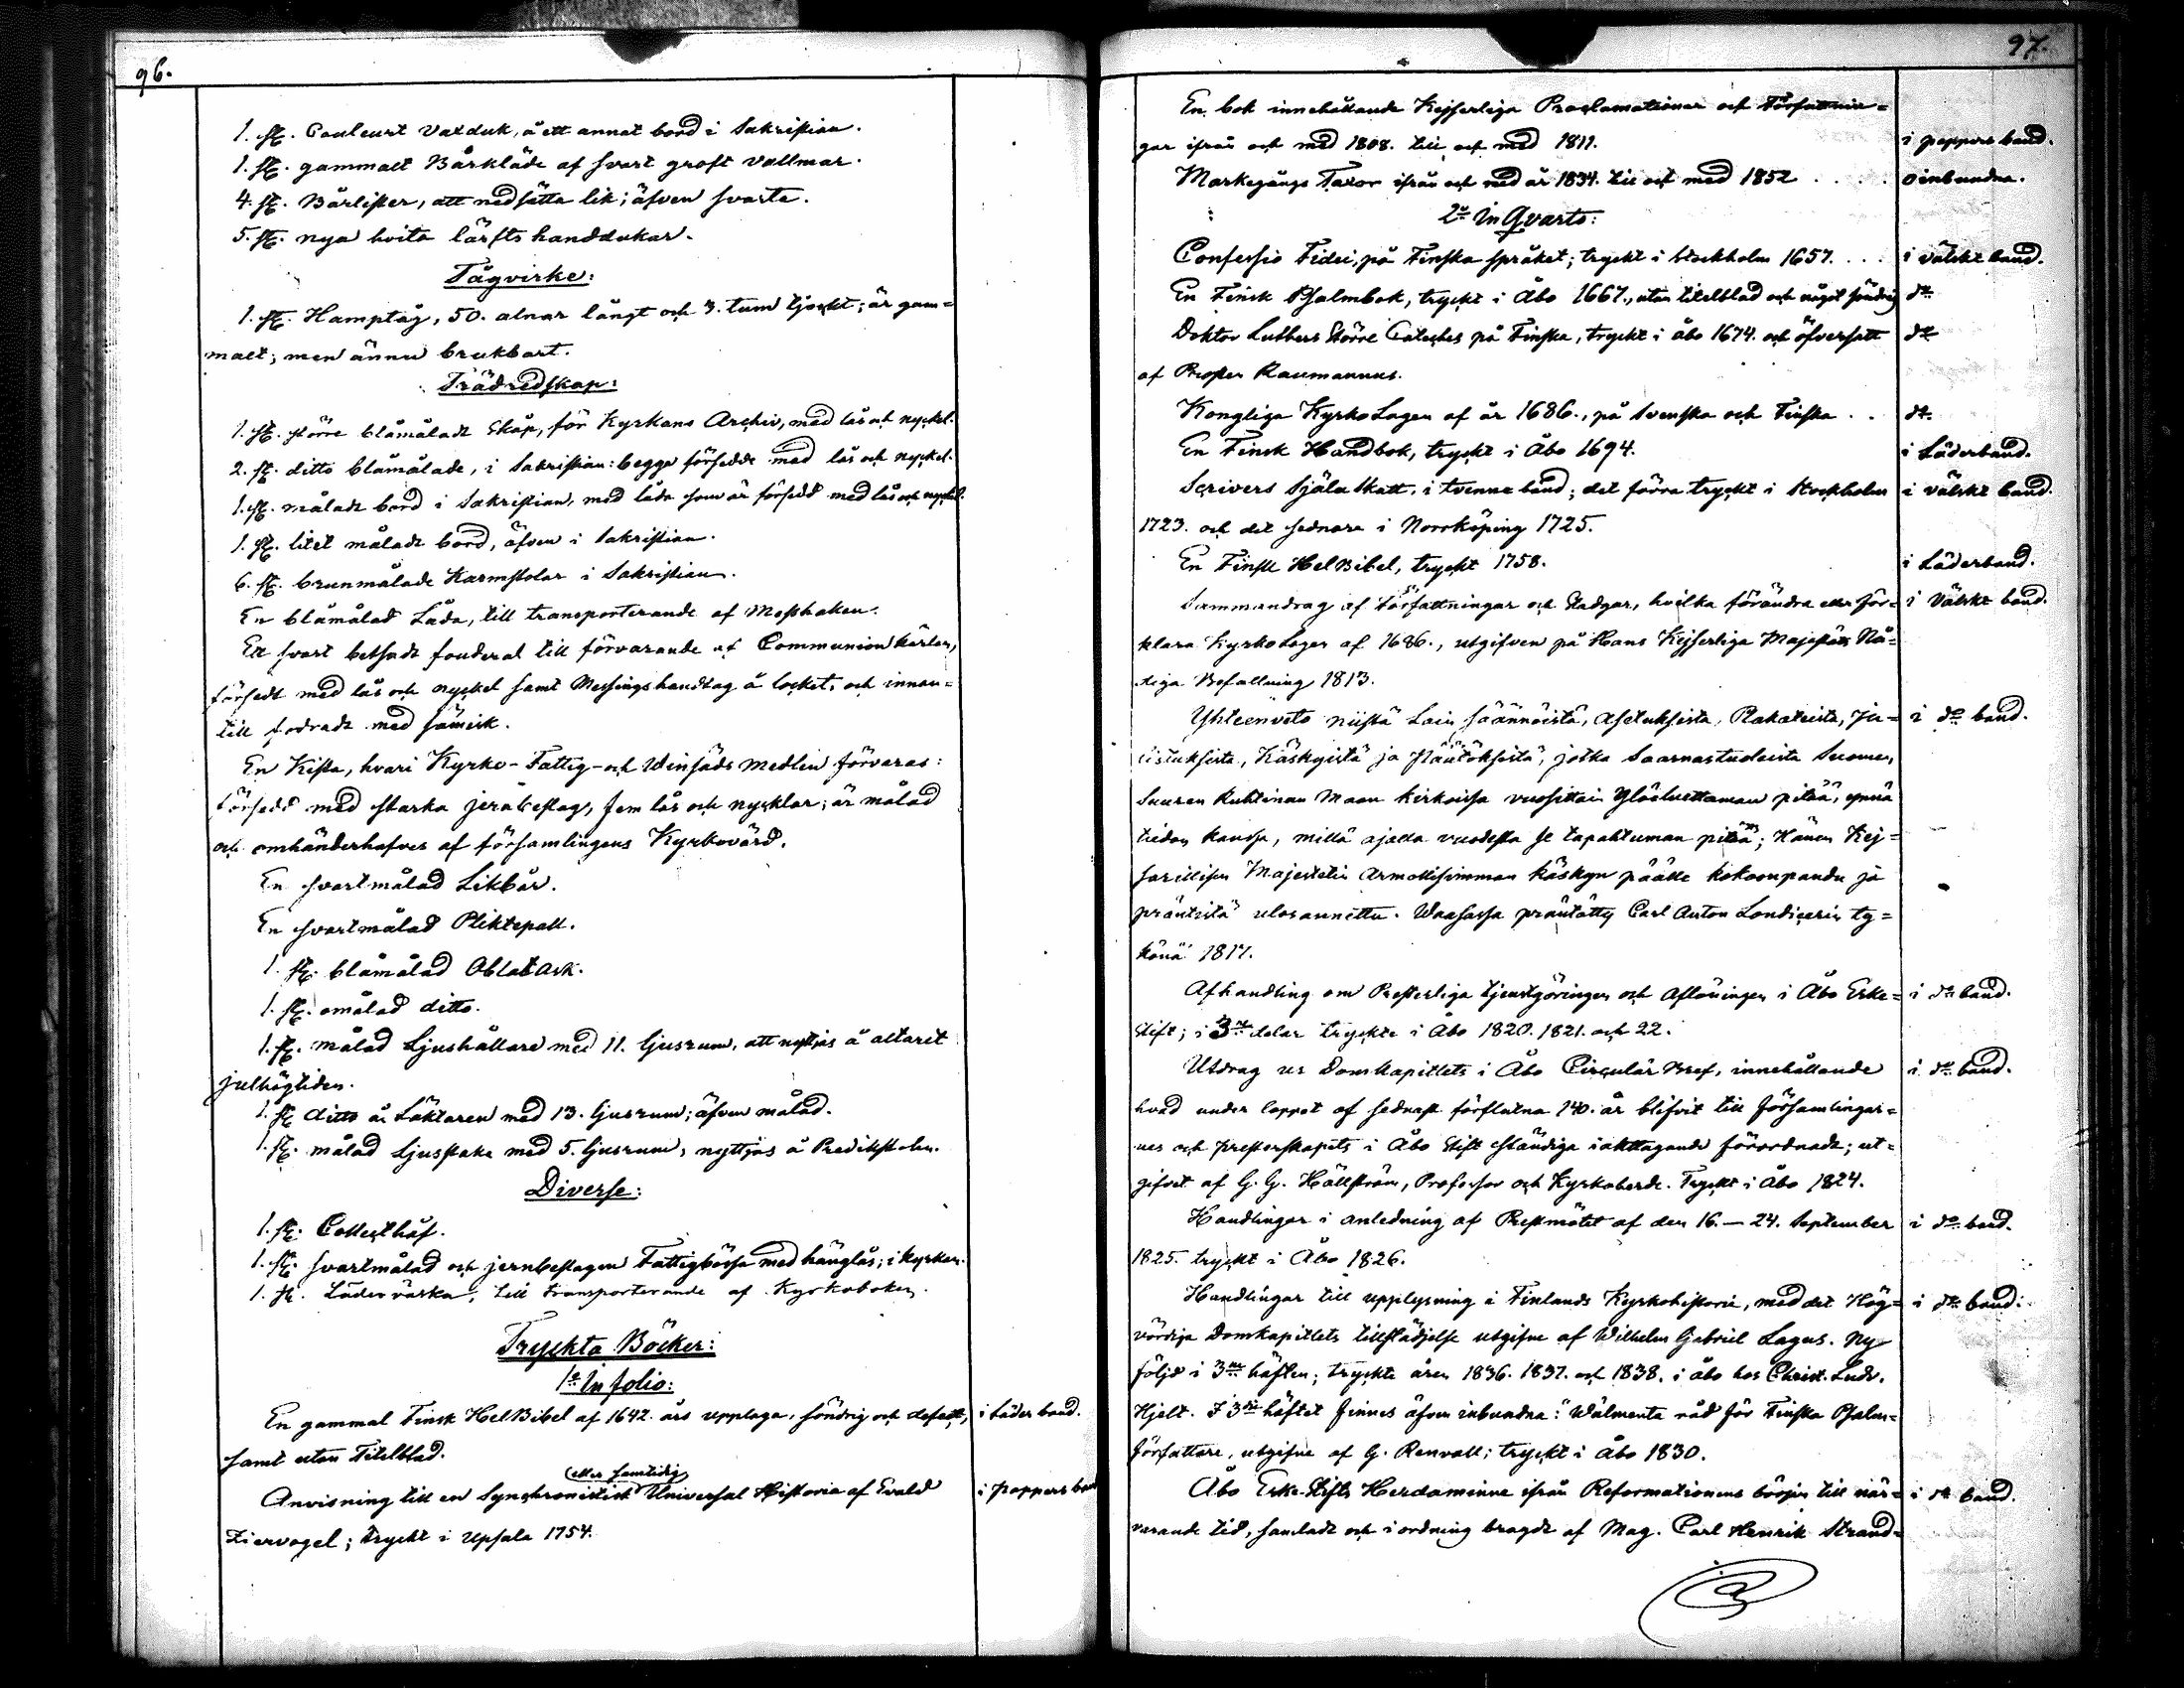 96.
1. st. Couleurt Vaxduk, å ett annat bord i Sakristian.
1. st. gammalt Bårkläde af svart groft vallmar.
4. st. Bårlister, att nedsätta lik; äfven svarta.
5. st. nya hvita lärfts handdukar.
Tågvirke:
1. st. Hamptåg, 50. alnar långt och 3. tum tjockt; är gam=
malt; men ännu brukbart.
Trädredskap:
1. st. större blåmåladt Skåp, för Kyrkans Archiv, med lås och nyckel.
2. st. ditto blåmålade, i Sakristian: begge försedde med lås och nyckel.
1. st. måladt bord i Sakristian, med låda som är försedd med lås och nyckel.
1. st. litet måladt bord, äfven i Sakristian.
6. st. brunmålade Karmstolar i Sakristian.
En blåmålad Låda, till transporterande af Messhaken.
Ett svart betsadt fouderal till förvarande af Communion kärlen,
försedt med lås och nyckel samt Messingshandtag å locket, och innan=
till fodradt med sämisk.
En Kista, hvari Kyrko-Fattig-och Udensäds medlen förvaras:
försedd med starka jernbeslag, fem lås och nycklar; är målad
och omhänderhafves af församlingens Kyrkovärd.
En svartmålad Likbår.
En svartmålad Pliktepall.
1. st. blåmålad Oblat Ask.
1. st. omålad ditto.
1. st. målad Ljushållare med 11. ljusrum, att nyttjas å altaret
julhögtiden.
1. st ditto å Läktaren med 13. ljusrum; äfven målad.
1. st. målad Ljusstake med 5. ljusrum, nyttjas å Predikstolen.
Diverse:
1. st. Collecthåf.
1. st. svartmålad och jernbeslagen Fattigbössa med hänglås; i kyrkan.
1. st. Läderväska, till transporterande af Kyrkoboken.
Tryckta Böcker:
1o In folio:
En gammal Finsk HelBibel af 1642. års upplaga, söndrig och defect, i Läder band.
samt utan Titelblad.
eller samtidig
Anvisning till en Synchronistisk Universal Historia af Evald i pappers band
Ziervogel; tryckt i Upsala 1754.
97.
En bok innehållande Kejserliga Proclamationer och Författnin=
gar ifrån och med 1808. till och med 1811. i pappers band.
Markegångs Taxor ifrån och med år 1834. till och med 1852 . . . . oinbundna.
2o In Qvarto:
Confessio Fidei, på Finska språket; tryckt i Stockholm 1657. . . . i välskt band.
En Finsk Psalmbok, tryckt i Åbo 1667., utan titelblad och något söndrig do
Doktor Luthers Större Cateches på Finska, tryckt i Åbo 1674. och öfversatt do
af Prosten Raumannus.
Kongliga KyrkoLagen af år 1686., på Svenska och Finska . . do
En Finsk Handbok, tryckt i Åbo 1694. i Läderband.
Scrivers Själa Skatt, i tvenne band; det förra tryckt i Stockholm i välskt band.
1723. och det sednare i Norrköping 1725.
En Finsk HelBibel, tryckt 1758. i Läderband.
Sammandrag af Författningar och Stadgar, hvilka förändra eller för= i Välskt band.
klara KyrkoLagen af 1686., utgifven på Hans Kejserliga Majestäts Nå=
diga Befallning 1813.
Yhteenveto niistä Lain säännöistä, Asetuksista, Plakateista, Ju= i do band.
listuksista, Käskyistä ja Päätöksistä, jotka Saarnastuoleista Suomen
Suuren Ruhtinan Maan kirkoissa vuosittain Ylösluettaman pitää, ynnä
tiedon kanssa, millä ajalla vuodesta se tapahtuman pitää; Hänen Kej=
sarillisen Majestetin Armollisimman käskyn päälle kokoonpandu ja
präntistä ulosannettu. Waasassa präntätty Carl Anton Londicerin ty=
könä 1817.
Afhandling om Presterliga tjenstgöringen och Aflöningen i Åbo Erke= i do band.
Stift; i 3ne delar tryckte i Åbo 1820. 1821. och 22.
Utdrag ur Domkapitlets i Åbo Circulär Bref, innehållande i do band.
hvad under loppet af sednast förflutna 140. år blifvit till Församlingar=
nes och presterskapets i Åbo Stift ständiga iakttagande förordnadt; ut=
gifvet af G. G. Hällström, Professor och Kyrkoherde. Tryckt i Åbo 1824.
Handlingar i anledning af Prestmötet af den 16.—24. September i do band.
1825. tryckt i Åbo 1826.
Handlingar till upplysning i Finlands Kyrkohistorie, med det Hög= i do band.
vördiga Domkapitlets tillstädjelse utgifne af Wilhelm Gabriel Lagus. Ny
följd i 3ne häften; tryckte åren 1836. 1837. och 1838. i Åbo hos Christ. Ludv.
Hjelt. I 3dje häftet finnes äfven inbundna: Wälmenta råd för Finska Psalm=
författare, utgifne af G. Renvall; tryckt i Åbo 1830.
Åbo Erke-Stifts Herdaminne ifrån Reformationens början till när= i do band.
varande tid, samladt och i ordning bragdt af Mag. Carl Henrik Strand=